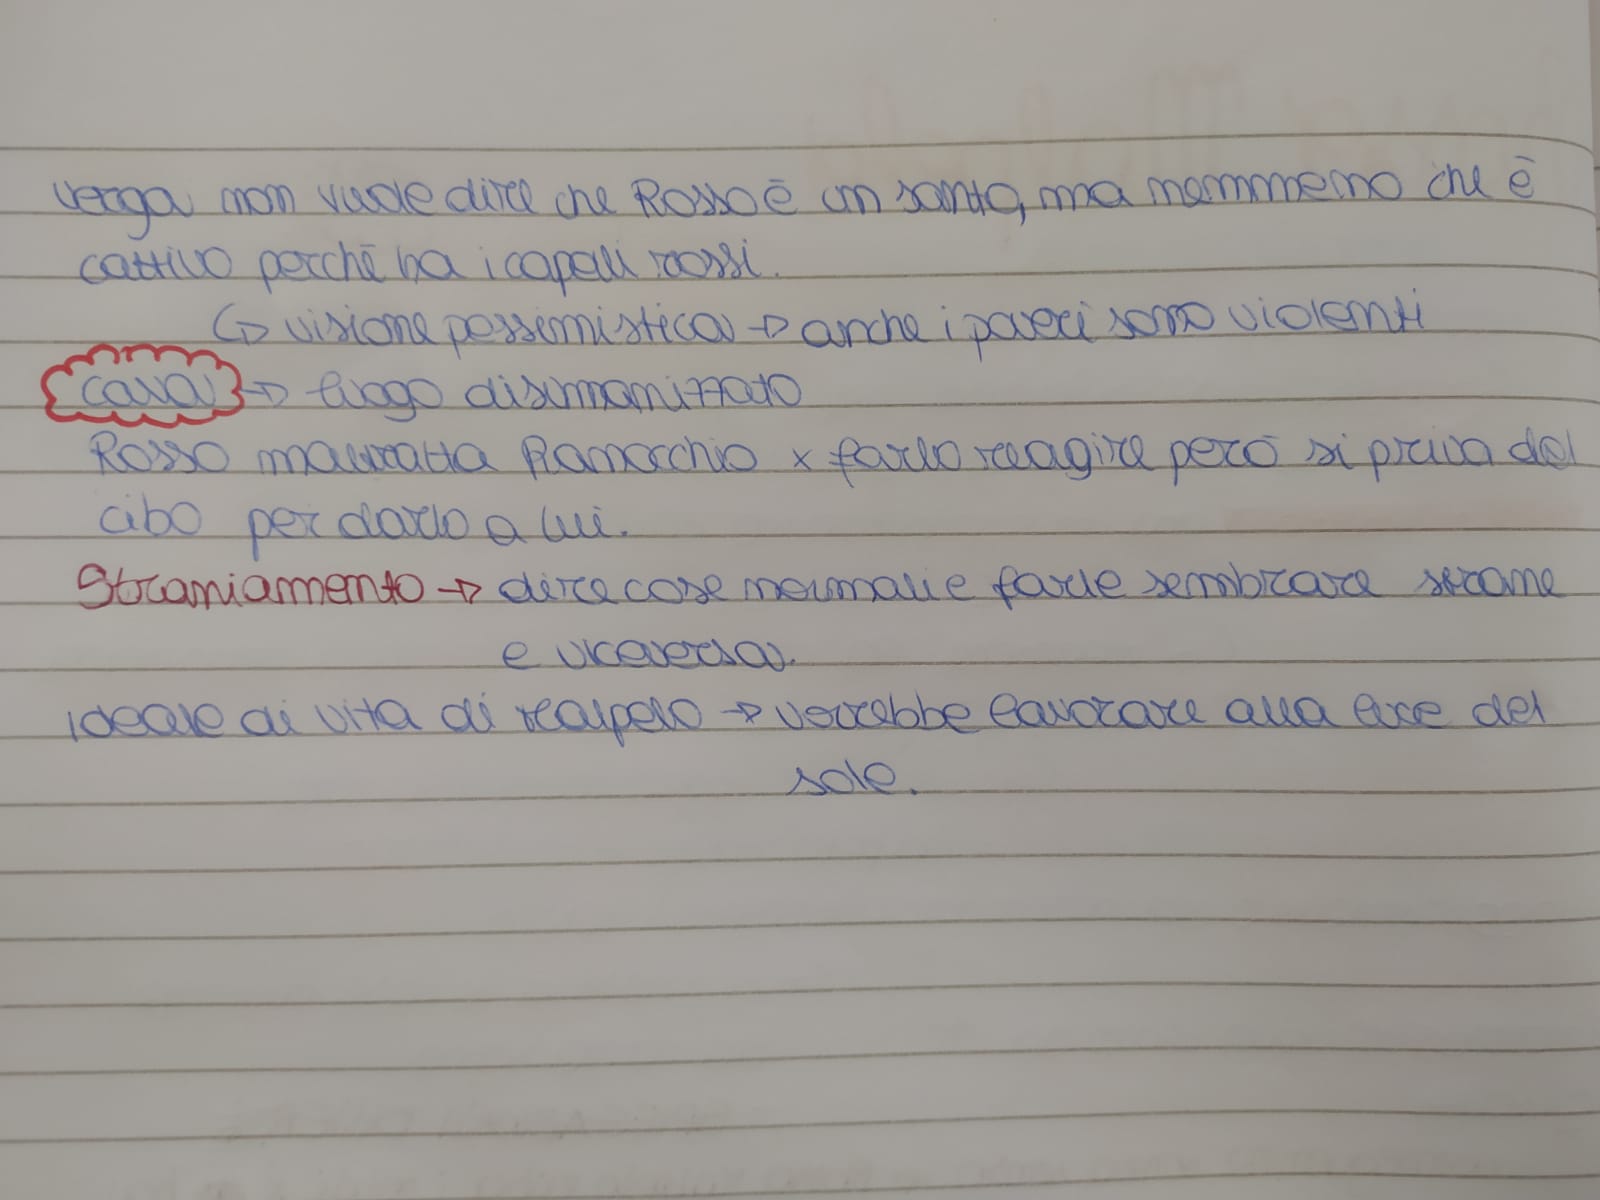 Verga non vuole dire che Rosso è un santo, ma nemmemo che è
cattivo perché ha i capelli rossi.
↳ visione pessimistica → anche i poveri sono violenti
cava → luogo disumanizzato
Rosso maltratta Ranocchio x farlo reagire però si priva del
cibo per darlo a lui.
Straniamento → dire cose normali e farle sembrare strane
e viceversa.
ideale di vita di malpelo → vorrebbe lavorare alla luce del
sole.